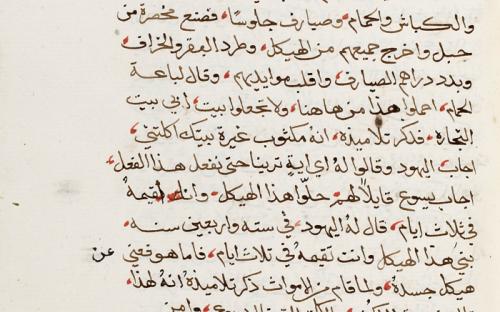 والكباش والحمام، وصيارف جلوسًا، فصنع مخصرة من
حبل واخرج جميعهم من الهيكل، وطرد البقر والخراف،
وبدد دراهم الصيارف، واقلب موايدهم، وقال لباعة
الحمام، احملوا هذا من هاهنا، ولا تجعلوا بيت، ابي بيت
التجارة، فذكر تلاميذه، انه مكتوب غيرة بيتك اكلتني،
اجاب اليهود وقالوا له اي اية ترينا حتى نفعل هذا الفعل،
اجاب يسوع قايلًا لهم، حلّوا هذا الهيكل، وانا اقيمهُ
في ثلاث ايام، قال لهُ اليهود، في سته واربعين سنه،
بني هذا الهيكل وانت تقيمهُ في ثلاث ايام، فاما هو فعني عن
هيكل جسدهُ، ولما قام من الاموات ذكر تلاميذهُ انهُ لهذا،